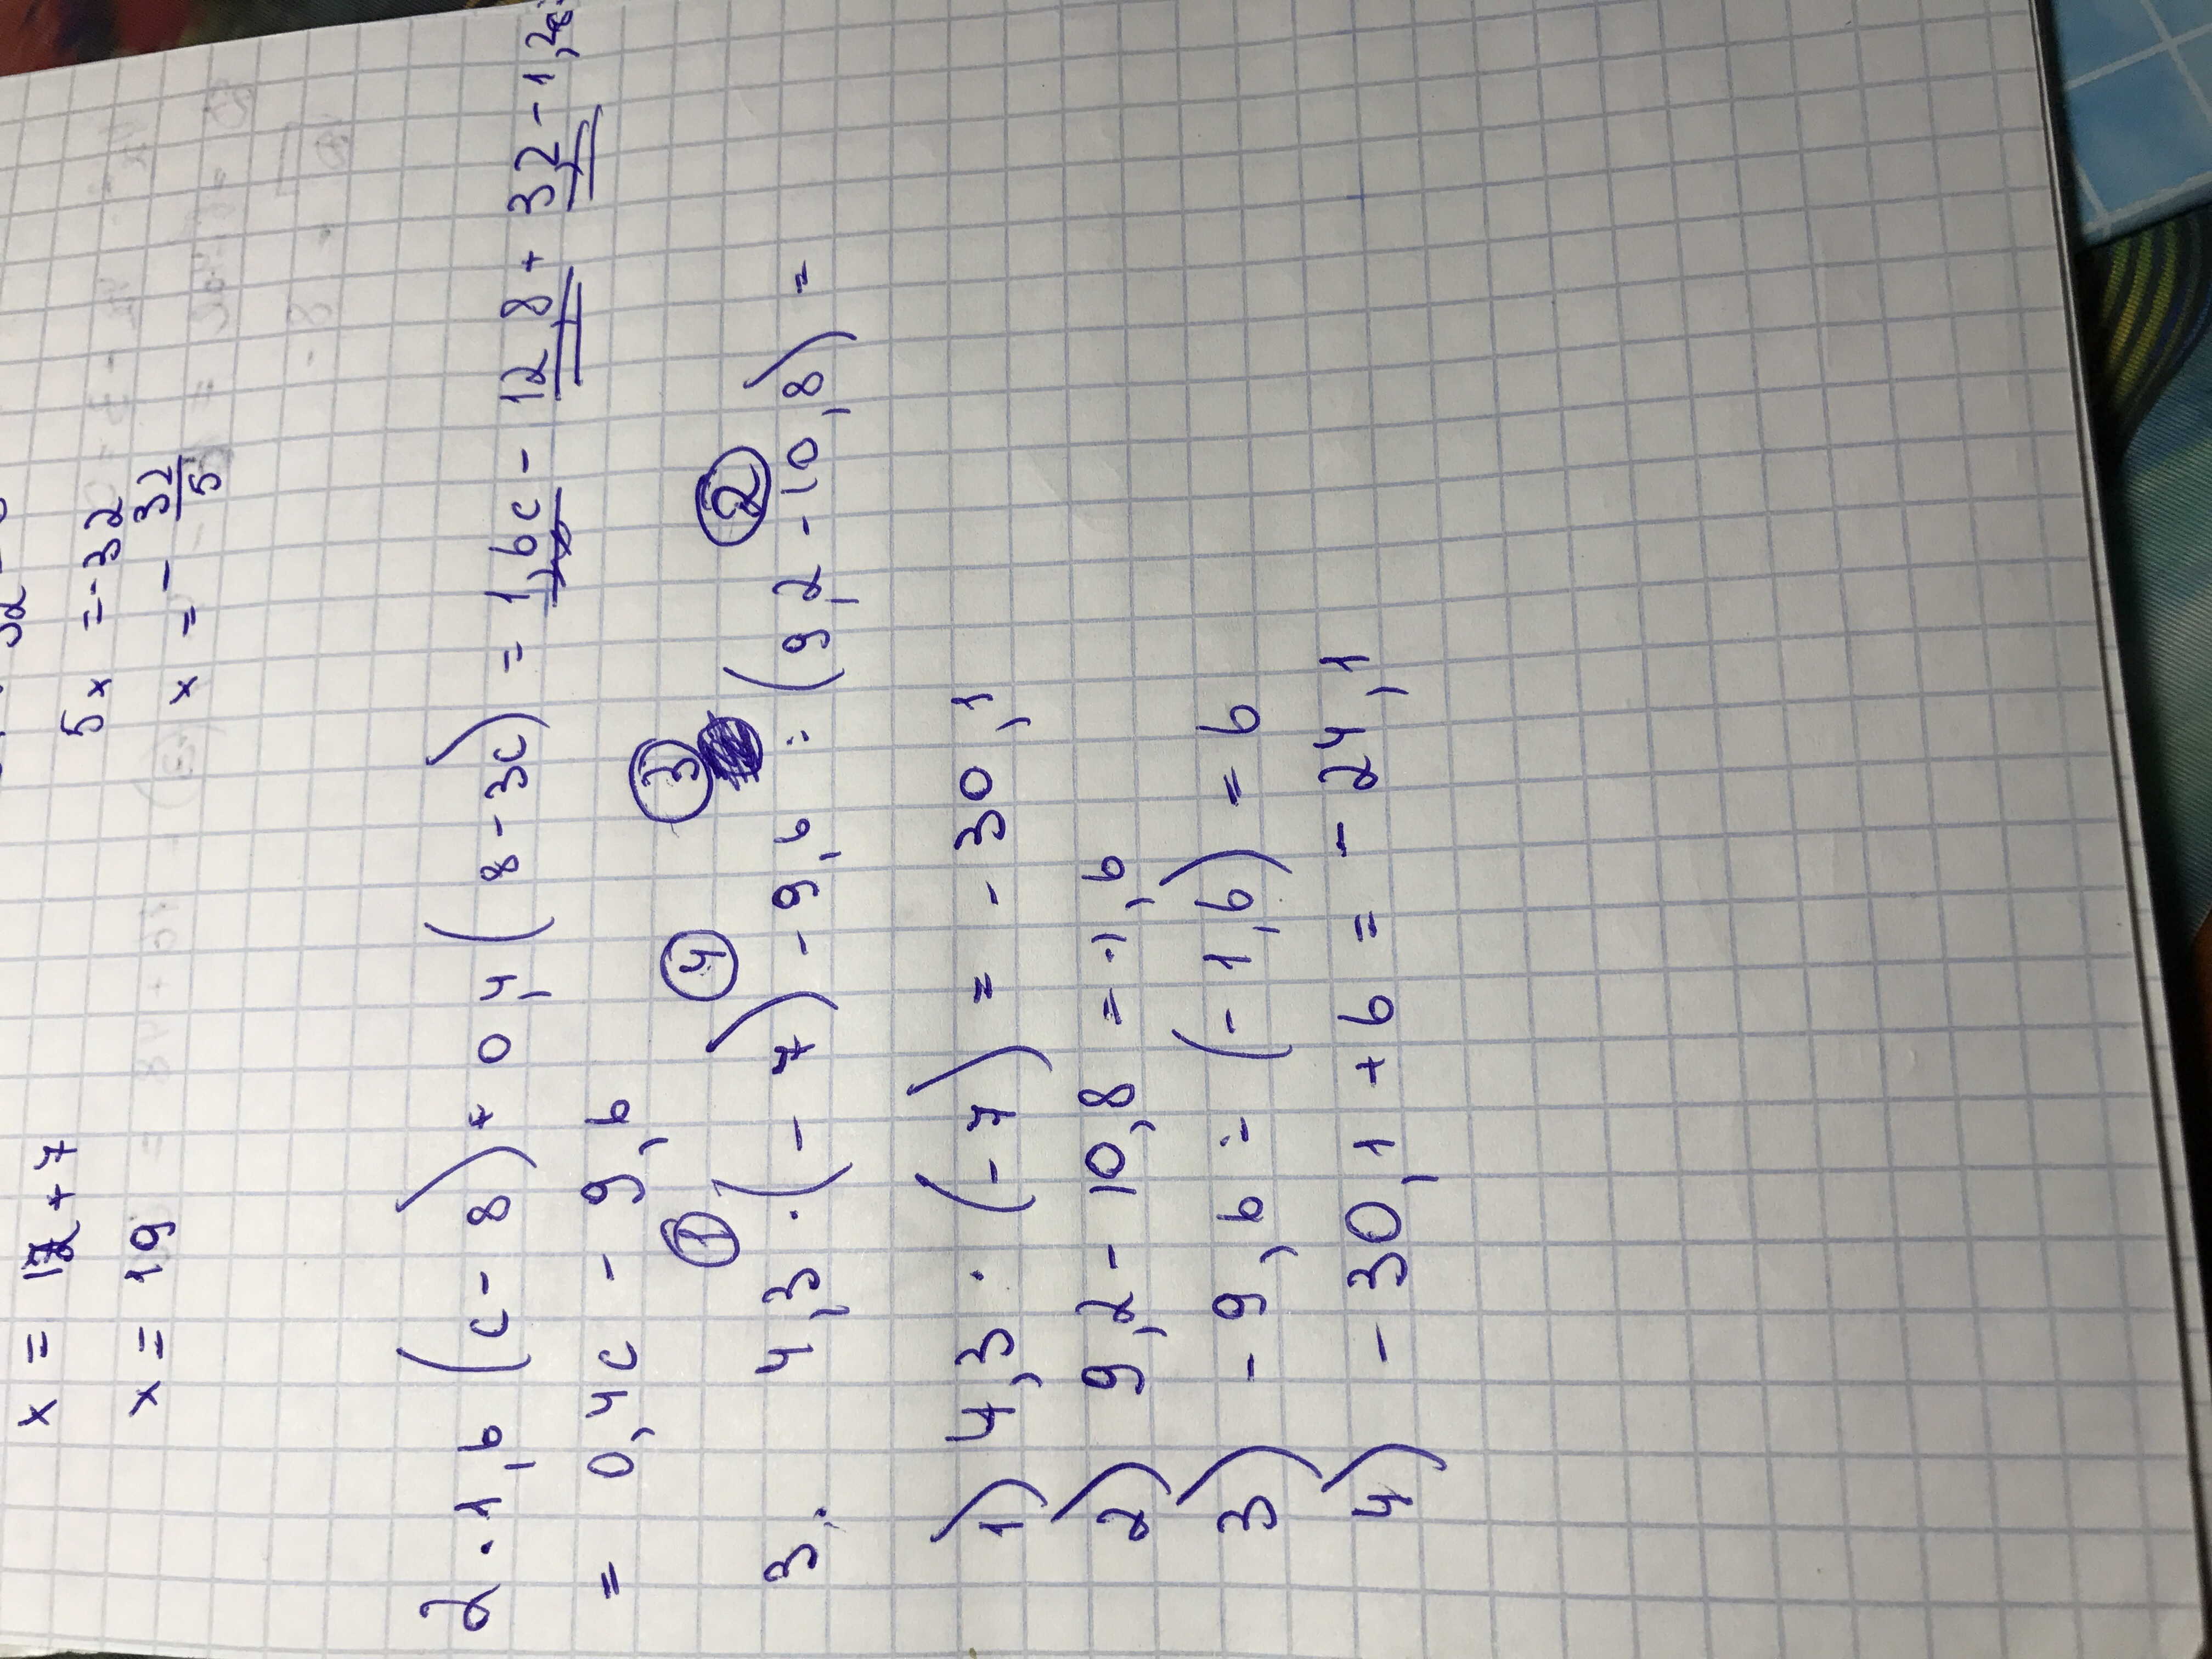 x = 12 + 7
x = 19
5x = -32
x = - 32/5
2. 1,6 (c - 8) + 0,4 (8 - 3c) = 1,6c - 12,8 + 3,2 - 1,2c =
= 0,4c - 9,6
① ④ ③ ②
3. 4,3 · (-7) - 9,6 : (9,2 - 10,8) =
1) 4,3 · (-7) = -30,1
2) 9,2 - 10,8 = -1,6
3) -9,6 : (-1,6) = 6
4) -30,1 + 6 = -24,1